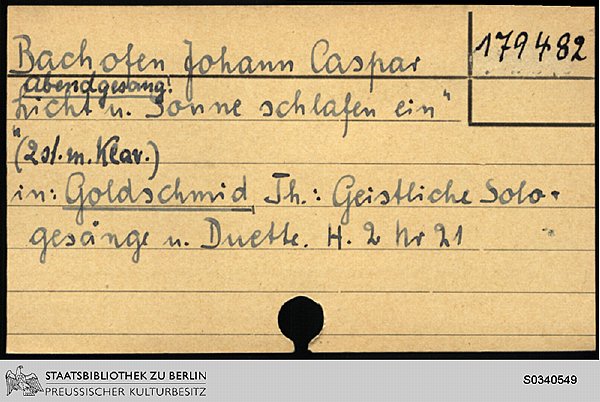 Bachofen Johann Caspar
179482
Abendgesang:
"Licht u. Sonne schlafen ein"
(2st. m. Klav.)
in: Goldschmid Th.: Geistliche Solo-
gesänge u. Duette. H. 2 Nr 21
STAATSBIBLIOTHEK ZU BERLIN
PREUSSISCHER KULTURBESITZ
S0340549